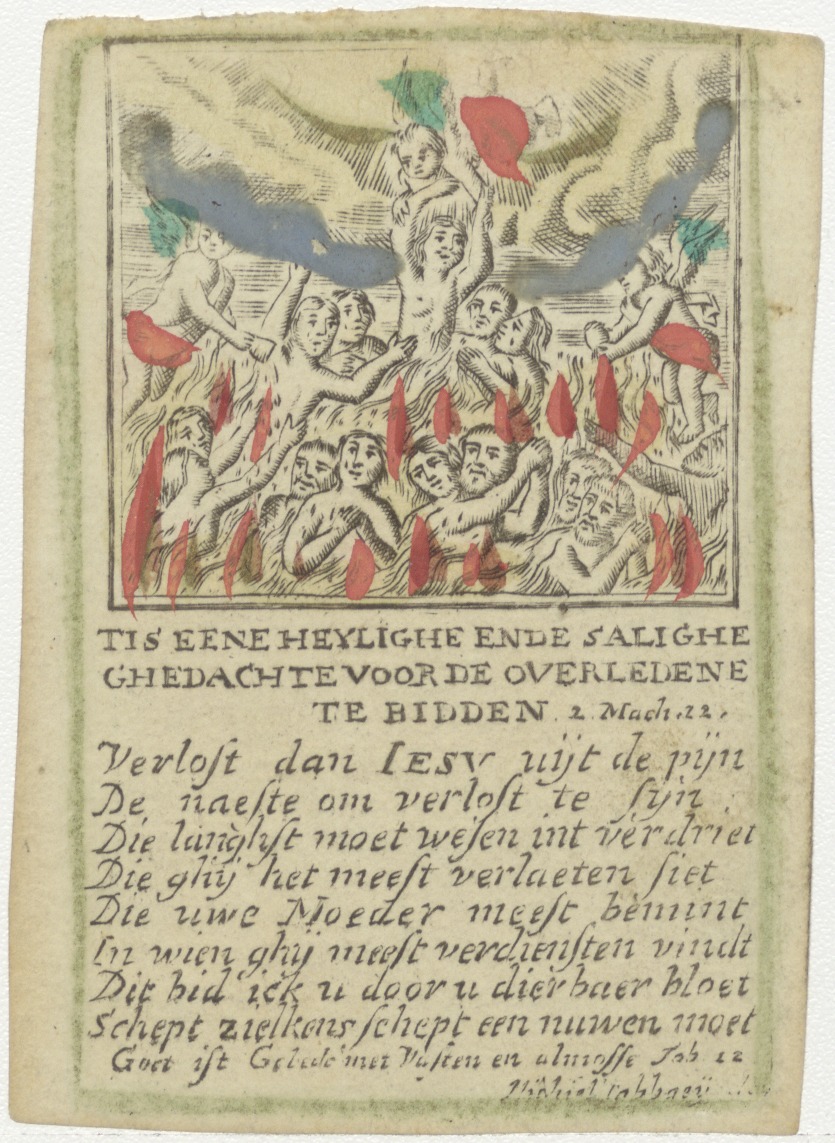 TIS EENE HEYLIGHE ENDE SALIGHE
GHEDACHTE VOOR DE OVERLEDENE
TE BIDDEN. 2. Mach. 12.
Verlost dan IESV uijt de pijn
De naeste om verlost te sijn
Die langhst moet wesen int verdriet
Die ghij het meest verlaeten siet
Die uwe Moeder meest bemint
In wien ghij meest verdiensten vindt
Dit bid ick u door u dierbaer bloet
Schept zielkens schept een nuwen moet
Goet ist met Vasten en almosse Tob 12